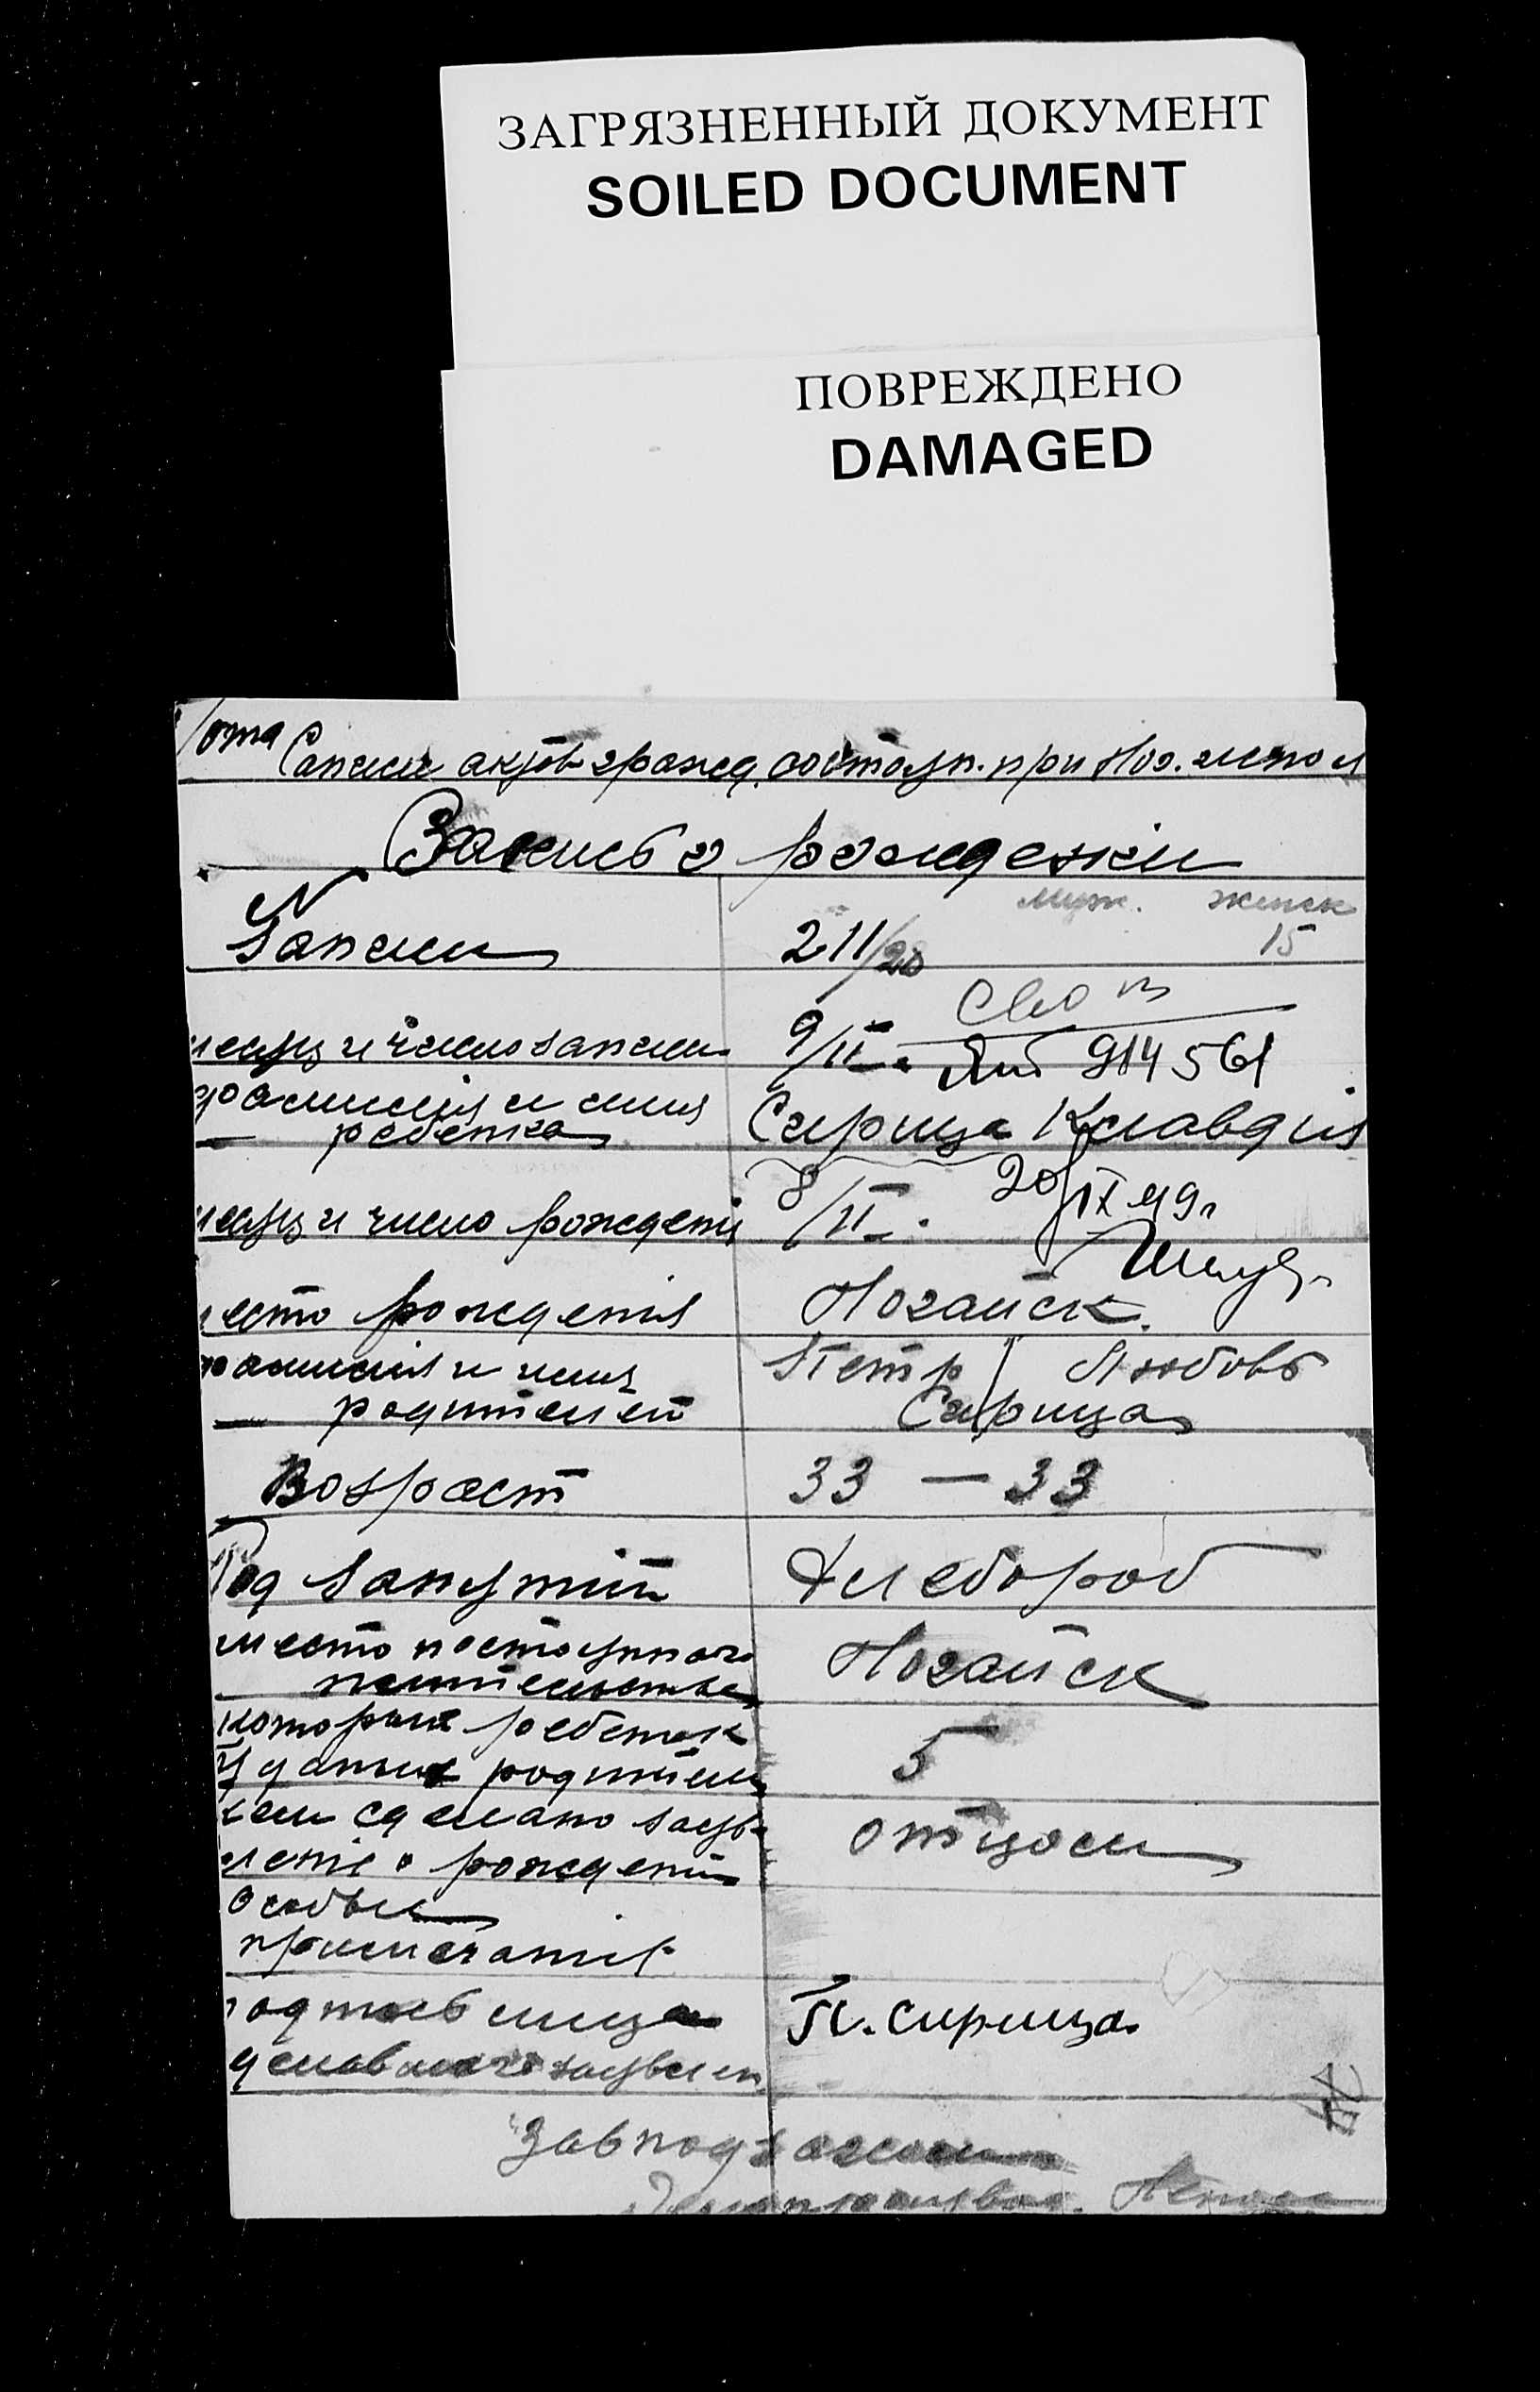 ЗАГРЯЗНЕННЫЙ ДОКУМЕНТ
SOILED DOCUMENT
ПОВРЕЖДЕНО
DAMAGED
Записи актов гражд. состоян. при Ног.
Запись о рождении
муж. женск
N записи 211/28 15
месяц и число записи 9/II.
ЯП 914561
фамилия и имя
ребенка Сирица Клавдия
20/IX 49г
месяц и число рожденія 8/II.
место рожденія Ногайск.
фамилия и имя Петр Любовь
родителей Сирица
Возраст 33 — 33
Род занятій Хлебороб
место постоянного
жительства Ногайск
который ребенок
у данных родителей 5
кем сделано заяв-
леніе о рожденіи отцом
Особые
примечанія
подпись лица П. Сирица
Завподзагсом